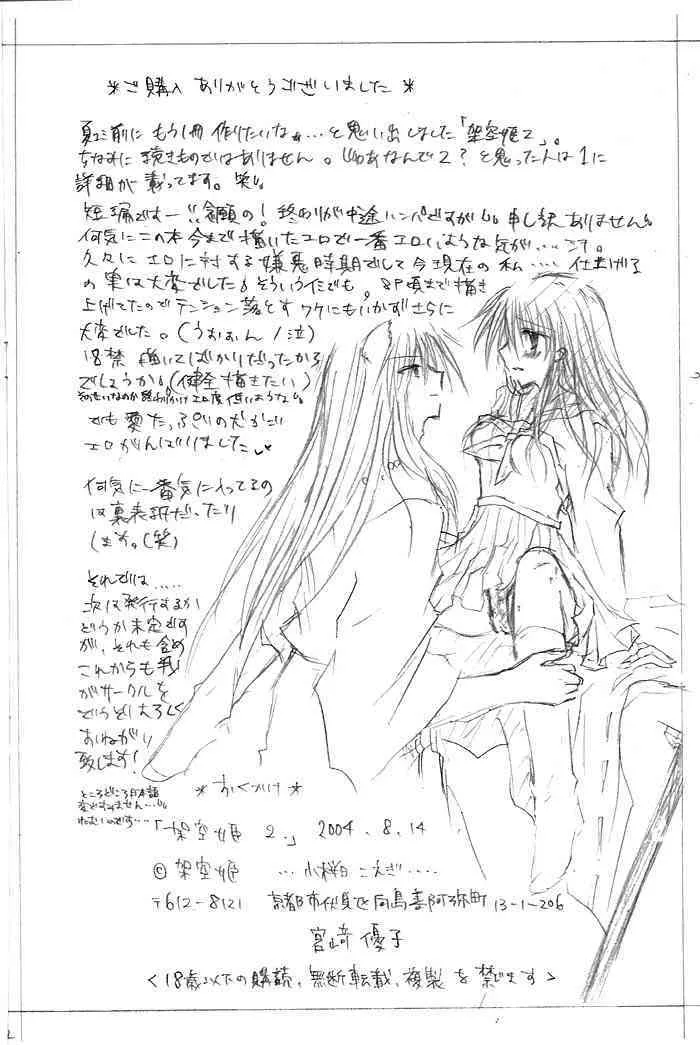 *ご購入 ありがとうございました*
夏コミ前に もう1冊 作りたいなぁ…と思い出しました「架空姫2」。
ちなみに 続きものではありません。なんで2?と思った人は1に
詳細が載ってます。笑
短編ですー!!念願の!終わりが中途ハンパですが 申し訳ありません
何気にこの本今まで描いたエロで一番エロいような気が…ます。
久々にエロに対する嫌悪時期でして今現在の私…. 仕上げる
の実は大変でした そういうイミでも。8P頃まで描き
上げてたのでテンション落とすワケにもいかずさらに
大変でした。(うおぉん/泣)
18禁 描いてばかりだったから
でしょうか。(健全描きたい)
でも愛たっぷりの
エロがんばりました
何気に一番気に入ってるの
は裏表紙だったり
します。(笑)
それでは.....
次は発行するか
どうか未定です
が、それも含め
これからも我
がサークルを
どうぞよろしく
おねがい
致します!
ところどころ日本語
変ですみません…
*おくづけ*
「架空姫 2.」 2004.8.14
© 架空姫 …小桜 こえだ….
〒612-8121 京都市伏見区向島善阿弥町 13-1-206
宮崎 優子
<18歳以下の購読、無断転載、複製を禁じます>